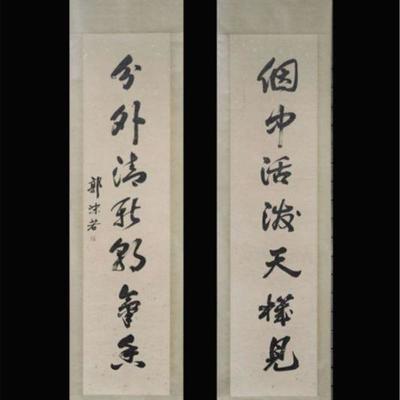 個中活潑天機見
分外清新朝氣
郭沫若